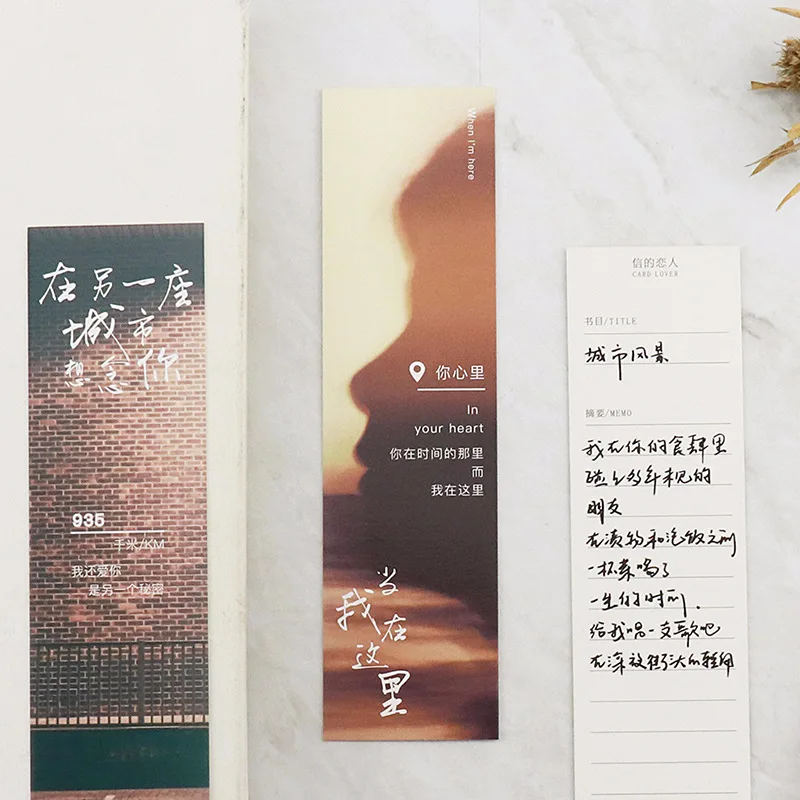 在另一座
城市
想念你
935
千米/KM
我还爱你
是另一个秘密
When I'm here
你心里
In
your heart
你在时间的那里
而
我在这里
当
我在
这
里
信的恋人
CARD LOVER
书目/TITLE
城市风景
摘要/MEMO
我在你的食肆里
碰上多年未见的
朋友
在渍物和泡饭之间
一杯茶喝了
一生的时间.
给我唱一支歌吧
在深夜街头的